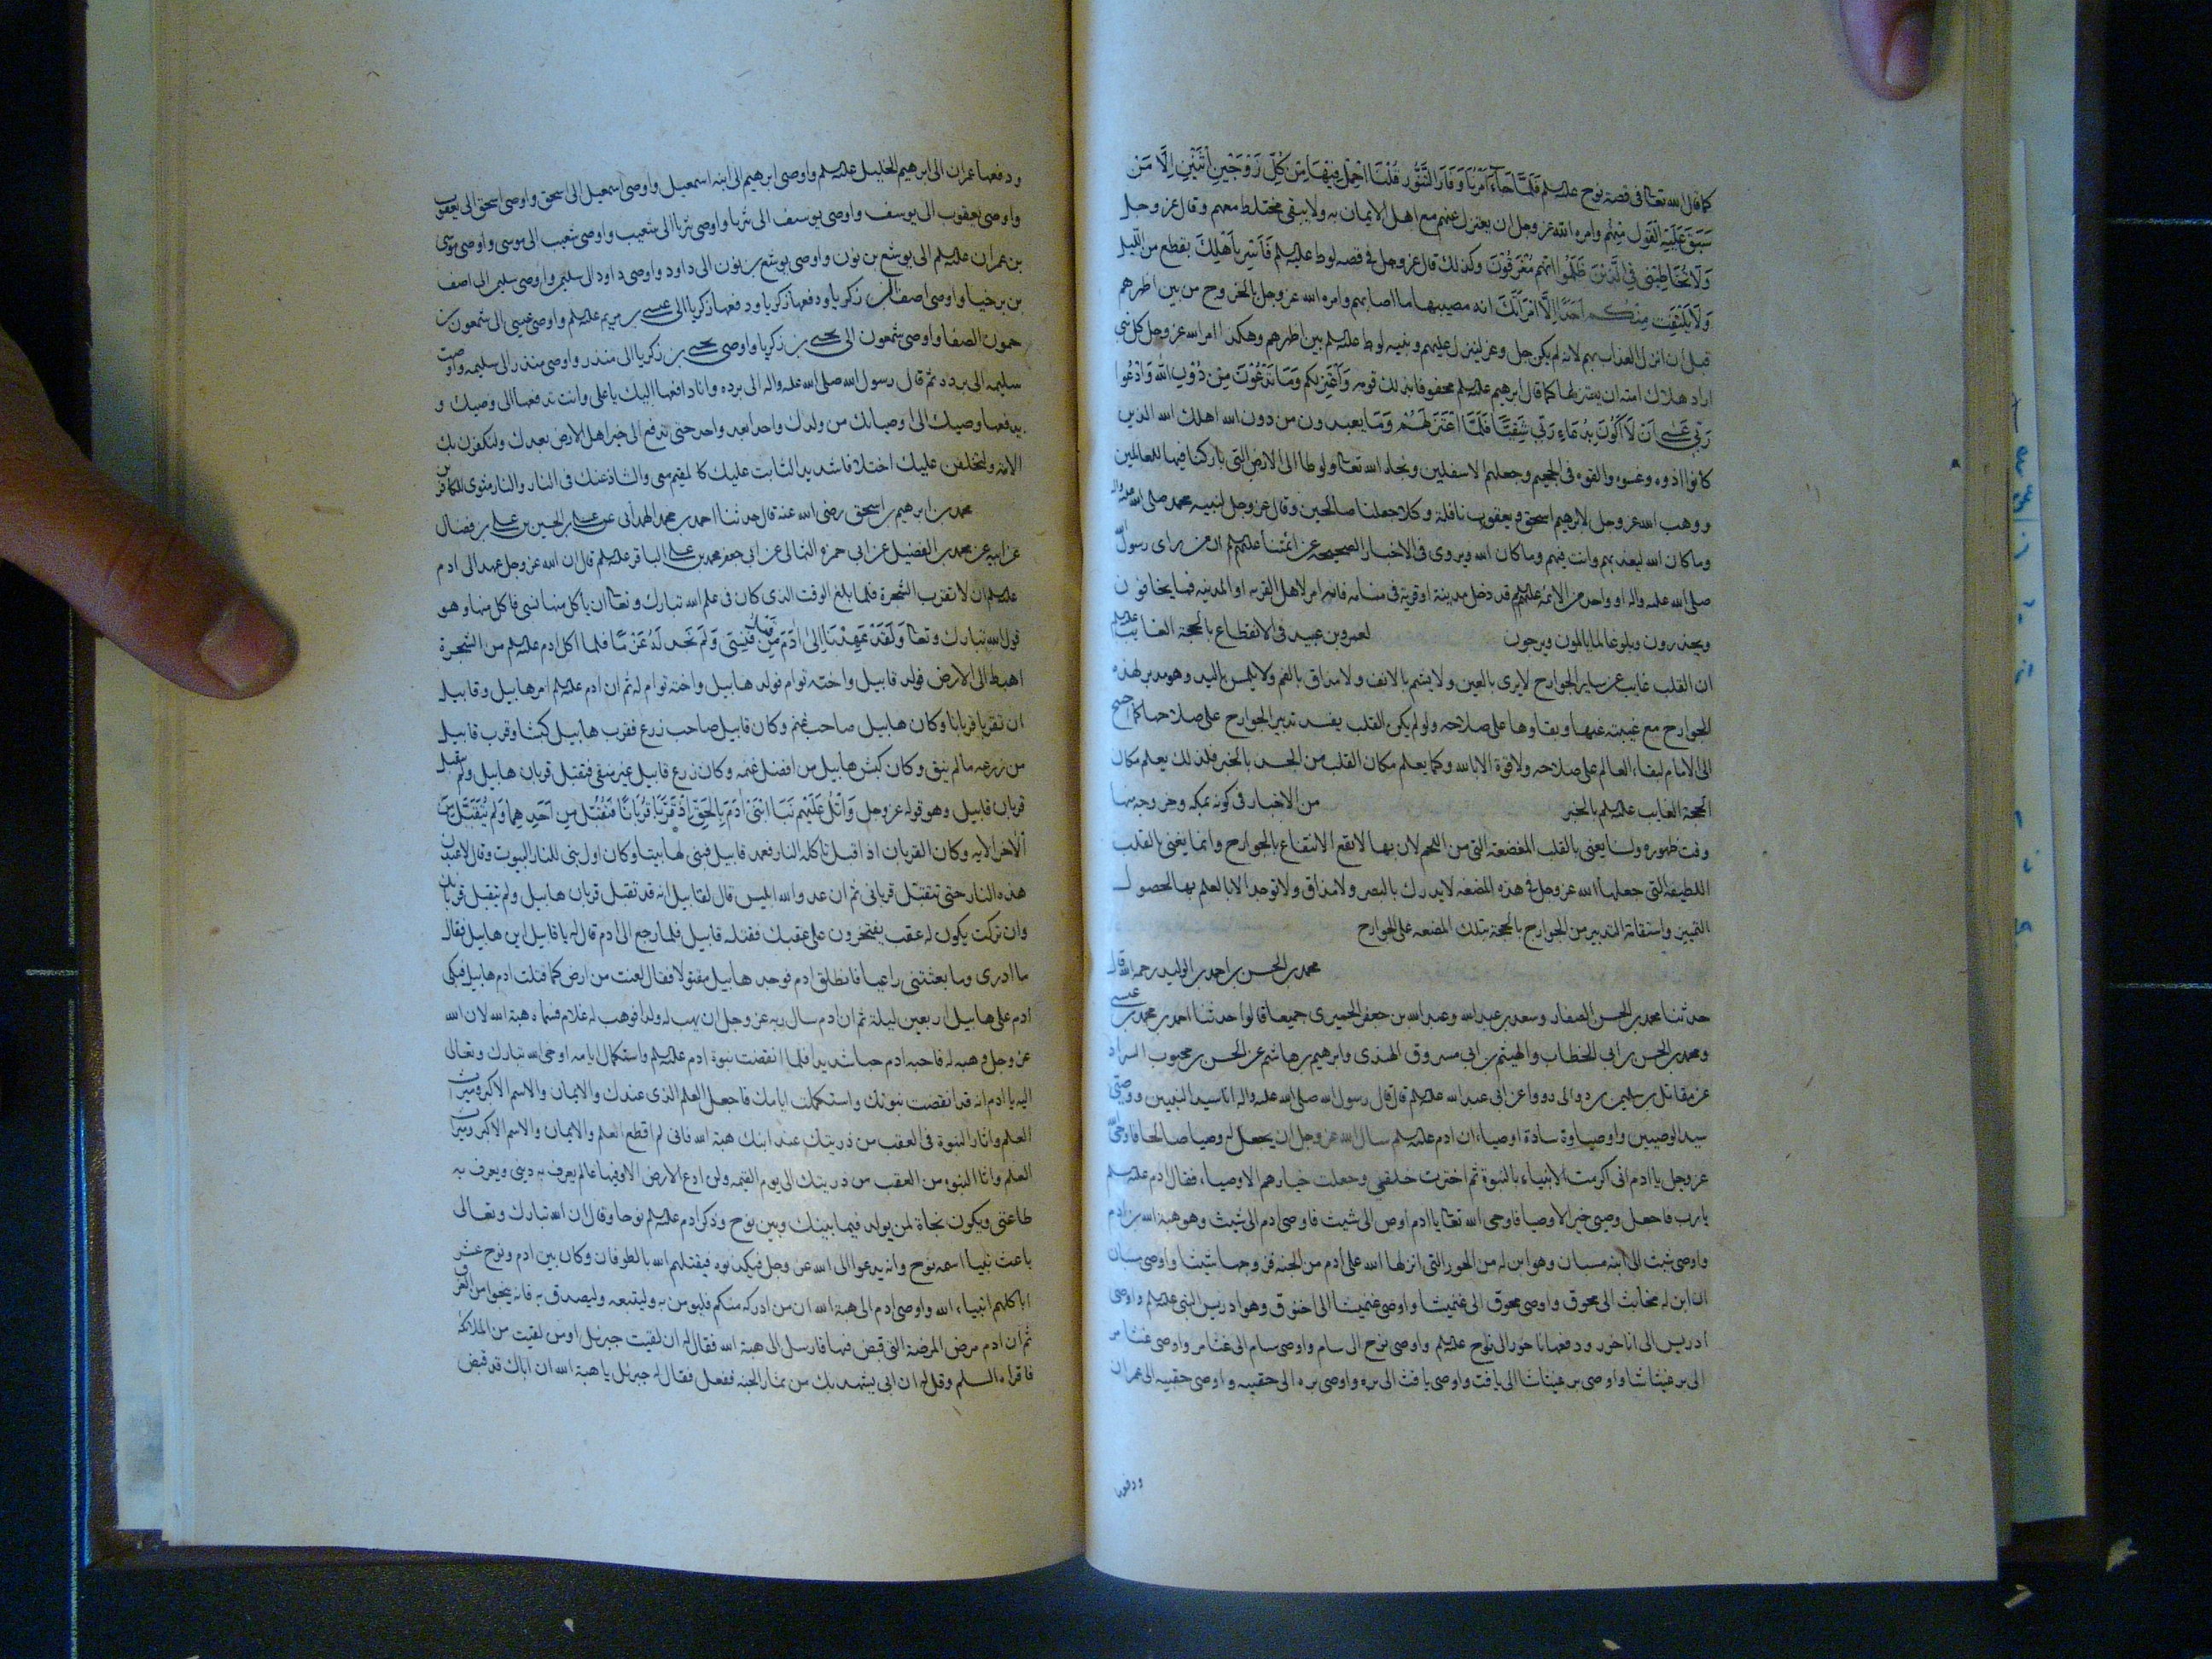 كما قال الله تعالى في قصة نوح عليه السلم فَلَمَّا جَاءَ اَمْرُنَا وَفَارَ التَّنُّور قُلْنَا احْمِلْ فِيْهَا مِنْ كُلِّ زَوْجَيْنِ اثْنَيْنِ اِلَّا مَنْ
سَبَقَ عَلَيْهِ الْقَوْل مِنْهُم وامره الله عز وجل ان يعتزل عنهم مع اهل الايمان به ولا يبقى مختلط معهم وقال عز وجل
وَلَا تُخَاطِبْنِي فِي الَّذِيْنَ ظَلَمُوا اِنَّهُم مُغْرَقُوْنَ وكذلك قال عز وجل في قصه لوط عليه السلم فَاَسْرِ بِاَهْلِكَ بقطع من اللَّيل
وَلَا يَلْتَفِت مِنْكُم اَحَدٌ اِلَّا امْرَاَتَكَ انه مصيبها ما اصابهم وامره الله عز وجل بالخروج من بين اظهرهم
قبل ان انزل العذاب بهم لانه لم يكن جل وعز لينزل عليهم ونبيه لوط عليه السلم بين اظهرهم وهكذا امر الله عز وجل كل نبي
اراد هلاك امته ان يعتزلها كما قال ابرهيم عليه السلم مخوفا بذلك قومه وَاَعْتَزِلُكم وَمَا تَدْعُوْنَ مِنْ دُوْنِ الله وَادْعُوا
رَبِّي عَسَى اَنْ لَا اَكُوْنَ بِدُعَاءِ رَبِّي شَقِيًّا فَلَمَّا اعْتَزَلَهُمْ وَمَا يعبدون من دون الله اهلك الله الذين
كانوا اذوه وعنتوه والقوه في الجحيم وجعلهم الاسفلين ونجاه الله تعالى ولوطا الى الارض التي باركنا فيها للعالمين
ووهب الله عز وجل لابرهيم اسحق ويعقوب نافلة وكلا جعلنا صالحين وقال عز وجل لنبيه محمد صلى الله عليه واله
وما كان الله ليعذبهم وانت فيهم وما كان الله ويروى في الاخبار الصحيحه عن ائمتنا عليهم السلم ان من راى رسول الله
صلى الله عليه واله او واحد من الائمة عليهم السلم قد دخل مدينة او قرية في منامه فانه امن لاهل القريه او المدينه فيما يخافون
ويحذرون وبلوغا لما يأملون ويرجون لعمرو بن عبيد في الانقطاع بالحجة الغايب عليه السلم
ان القلب غايب عن ساير الجوارح لا يرى بالعين ولا يشم بالانف ولا مذاق بالفم ولا يلمس باليد وهو مدبر لهذه
الجوارح مع غيبته عنها وبقاوها على صلاحه ولو لم يكن القلب يفسد تدبير الجوارح على صلاحها كما احتيج
الى الامام لبقاء العالم على صلاحه ولا قوة الا بالله وكما يعلم مكان القلب من الجسد بالخبر فلذلك يعلم مكان
الحجة الغايب عليه السلم بالخبر من الاخبار في كونه بمكه وخروجه منها
وقت ظهوره ولسنا يعنى بالقلب المضغة التي من اللحم لان بها لا يقع الانتفاع بالجوارح وانما يعنى بالقلب
اللطيفه التي جعلها الله عز وجل في هذه المضغه لا يدرك بالبصر ولا مذاق ولا توجد الا بالعلم بها لحصول
التمييز واستقامة التدبير من الجوارح بالحجة بتلك المضغه على الجوارح
محمد بن الحسن بن احمد بن الوليد رحمه الله قال
حدثنا محمد بن الحسن الصفار وسعد بن عبد الله وعبد الله بن جعفر الحميرى جميعا قالوا حدثنا احمد بن محمد بن عيسى
ومحمد بن الحسن بن ابي الخطاب والهيثم بن ابي مسروق النهدى وابرهيم بن هاشم عن الحسن بن محبوب السراد
عن مقاتل بن سليمن بن دوالى دوواعن ابي عبد الله عليه السلم قال قال رسول الله صلى الله عليه واله انا سيد النبيين ووصيّى
سيد الوصيين واوصياوه سادة اوصياء ان ادم عليه السلم سال الله عز وجل ان يجعل له وصيا صالحا فاوحى الله
عز وجل يا ادم انى اكرمت الانبياء بالنبوة ثم اخترت خلقي وجعلت خيارهم الاوصياء فقال ادم عليه السلم
يا رب فاجعل وصيي خير الاوصيا فاوحى الله تعالى يا ادم اوص الى شيث فاوصى ادم الى شيث وهو هبة الله بن ادم
واوصى شيث الى ابنه مسبان وهو ابن له من الحور التى انزلها الله على ادم من الجنه فزوجها شيثا واوصى سبان
الى ابن له مخايث الى محوق واوصى محوق الى غثميثا واوصى غثميثا الى اخنوق وهو ادريس النبى عليه السلم واوصى
ادريس الى اناخور ودفعها ناخور الى نوح عليه السلم واوصى نوح الى سام واوصى سام الى عثامر واوصى عثامر
الى برعيثاشا واوصى برعيثاشا الى يافث واوصى يافث الى بره واوصى بره الى حقيبه واوصى حقيبه الى عمران
ودفعها
ودفعها عمران الى ابرهيم الخليل عليه السلم واوصى ابرهيم الى ابنه اسمعيل واوصى اسمعيل الى اسحق واوصى اسحق الى يعقوب
واوصى يعقوب الى يوسف واوصى يوسف الى بثريا واوصى بثريا الى شعيب واوصى شعيب الى موسى واوصى موسى
بن عمران عليه السلم الى يوشع بن نون واوصى يوشع بن نون الى داود واوصى داود الى سليمن واوصى سليمن الى اصف
بن برخيا واوصى اصف الى زكريا ودفعها زكريا ودفعها زكريا الى عيسى بن مريم عليه السلم واوصى عيسى الى شمعون بن
حمون الصفا واوصى شمعون الى يحيى بن زكريا واوصى يحيى بن زكريا الى منذر واوصى منذر الى سليمه واوصت
سليمه الى برده ثم قال رسول الله صلى الله عليه واله الى برده وانا دافعها اليك يا على وانت تدفعها الى وصيك و
يدفعها وصيك الى اوصيائك من ولدك واحد بعد واحد حتى تدفع الى خير اهل الارض بعدك ولتكفرن بك
الامة ولتختلفن عليك اختلافا شديدا الثابت عليك كالمقيم معى والشاذ عنك فى النار والنار مثوى للكافرين
محمد بن ابرهيم بن اسحق رضى الله عنه قال حدثنا احمد بن محمد الهمدانى عن على بن الحسين بن على بن فضال
عن ابيه عن محمد بن الفضيل عن ابى حمزه الثمالى عن ابى جعفر محمد بن على الباقر عليه السلم قال ان الله عز وجل عهد الى ادم
عليه السلم ان لا تقرب الشجرة فلما بلغ الوقت الذى كان فى علم الله تبارك وتعالى ان ياكل منها نسى فاكل منها وهو
قول الله تبارك وتعالى وَلَقَدْ عَهِدْنَا اِلَىٰ اٰدَمَ مِنْ قَبْلُ فَنَسِىَ وَلَم نَجِد لَهُ عَزْمًا فلما اكل ادم عليه السلم من الشجرة
اهبط الى الارض فولد قابيل واخته توام فولد هابيل واخته توام له ثم ان ادم عليه السلم امر هابيل وقابيل
ان تقربا قربانا وكان هابيل صاحب غنم وكان قابيل صاحب زرع فقرب هابيل كبشا وقرب قابيل
من زرعه ما لم ينق وكان كبش هابيل من افضل غنمه وكان زرع قابيل غير منقى فتقبل قربان هابيل ولم يتقبل
قربان قابيل وهو قوله عز وجل وَاتْلُ عَلَيْهِم نَبَاَ ابْنَىْ اٰدَمَ بِالحَقِّ اِذْ قَرَّبَا قُرْبَانًا فَتُقُبِّلَ مِن اَحَدِهِمَا وَلَم يُتَقَبَّلْ مِنَ
الْاٰخَر الايه وكان القربان اذا قبل تاكله النار فعمد قابيل فبنى لها بيتا وكان اول بنى للنار البيوت وقال لاعبدن
هذه النار حتى تتقبل قربانى ثم ان عدو الله ابليس قال لقابيل انه قد تقبل قربان هابيل ولم يتقبل قربانك
وان تركت يكون له عقب يفتخرون على عقبك فقتله قابيل فلما رجع الى ادم قال له يا قابيل اين هابيل فقال
ما ادرى وما بعثتنى راعيا فانطلق ادم فوجد هابيل مقتولا فقال لعنت من ارض كما قتلت ادم هابيل فبكى
ادم على هابيل اربعين ليلة ثم ان ادم سال ربه عز وجل ان يهب له ولدا فوهب له غلام فسماه هبة الله لان الله
عز وجل وهبه له فاحبه ادم حبا شديدا فلما انقضت نبوة ادم عليه السلم واستكمال ايامه اوحى الله تبارك وتعالى
اليه يا ادم انه قد انقضت نبوتك واستكملت ايامك فاجعل العلم الذى عندك والايمان والاسم الاكبر وميراث
العلم واثار النبوة فى العقب من ذريتك عند ابنك هبة الله فانى لم اقطع العلم والايمان والاسم الاكبر وميراث
العلم واثا النبوه من العقب من ذريتك الى يوم القيمه ولن ادع الارض الا وفيها عالم يعرف به دينى ويعرف به
طاعتى ويكون نجاة لمن يولد فيما بينك وبين نوح وذكر ادم عليه السلم نوحا وقال ان الله تبارك وتعالى
باعث نبيا اسمه نوح وانه يدعوا الى الله عز وجل فيكذبوه فيقتلهم الله بالطوفان وكان بين ادم ونوح عشر
ابا كلهم انبياء الله واوصى ادم الى هبة الله ان من ادركه منكم فليومن به وليتبعه وليصدق به فانه ينجوا من الغرق
ثم ان ادم مرض المرضة التى قبض فيها فارسل الى هبة الله فقال له ان لقيت جبرئيل اومن لقيت من الملائكة
فاقراه السلم وقل له ان ابى يستهديك من ثمار الجنه ففعل فقال له جبرئيل يا هبة الله ان اباك قد قبض